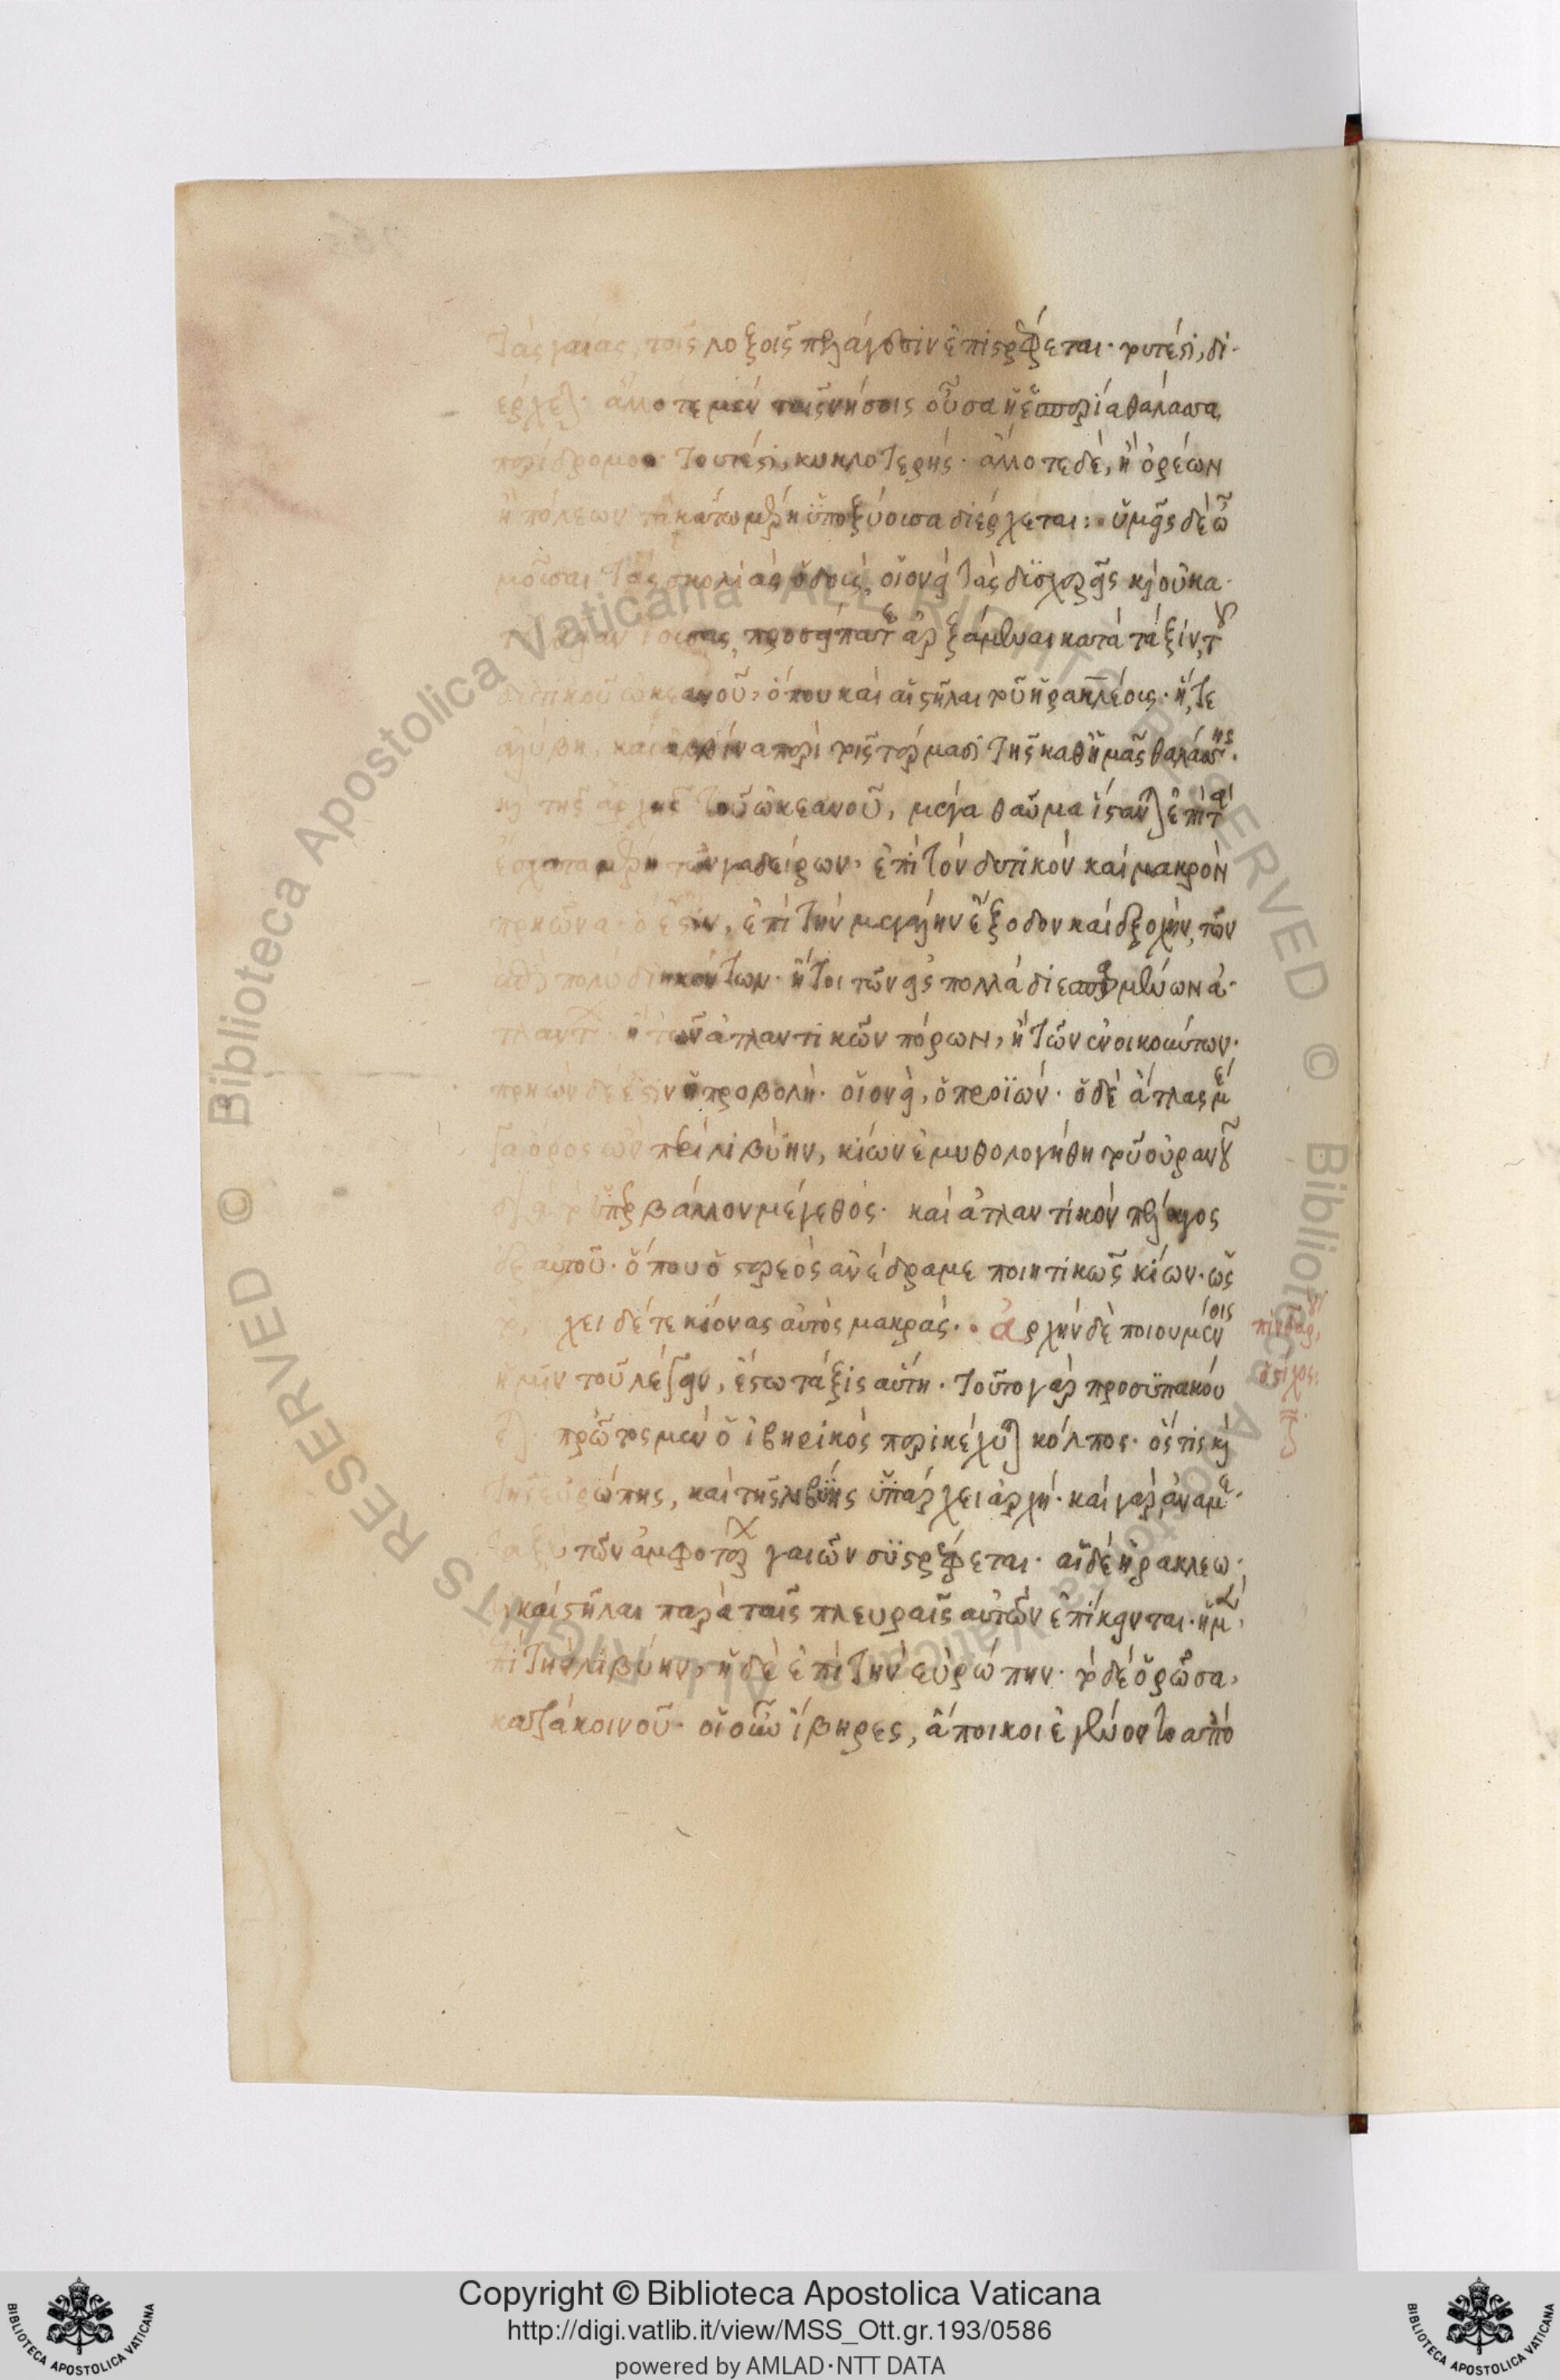 τὰς γαίας, τοῖς λοξοῖς πελάγεσιν ἐπιστρέφεται· τουτέστι, δι-
έρχεται· ἄλλοτε μὲν ταῖς νήσοις οὖσα ἡ ἑσπερία θάλασσα,
περίδρομος· τουτέστι, κυκλοτερής· ἄλλοτε δὲ, ἢ ὀρέων
ἢ πόλεων τὰ κάτω μέρη ὑποξύουσα διέρχεται: ὑμεῖς δὲ ὦ
μοῦσαι τὰς σκολιὰς ὁδοὺς, οἱονεὶ τὰς δυσχερεῖς καὶ οὐκα-
προσείπατε ἀρξάμεναι κατὰ τάξιν, τοῦ
δυτικοῦ ὠκεανοῦ, ὅπου καὶ αἱ στῆλαι τοῦ ἡρακλέους· ἥ, τε
ἀλύβη, καὶ ἀβρίνα περὶ τοῖς τέρμασι τῆς καθ' ἡμᾶς θαλάσσης.
καὶ τῆς ἀρχῆς τοῦ ὠκεανοῦ, μέγα θαῦμα ἵστανται ἐπὶ τὰ
ἔσχατα μέρη τῶν γαδείρων· ἐπὶ τὸν δυτικὸν καὶ μακρὸν
πρηῶνα· ὅ ἐστιν, ἐπὶ τὴν μεγάλην ἔξοδον καὶ ἐξοχὴν, τῶν
πολὺ διηκόντων· ἤτοι τῶν εἰς πολλὰ διεσπαρμένων ἀ-
τλάντων· ἢ τῶν ἀτλαντικῶν πόρων, ἢ τῶν ἐνοικούντων·
πρηὼν δέ ἐστιν ἡ προβολή· οἱονεὶ, ὁ προϊών· ὁ δὲ ἄτλας μέ-
γα ὄρος ὢν περὶ λιβύην, κίων ἐμυθολογήθη τοῦ οὐρανοῦ
διὰ τὸ ὑπερβάλλον μέγεθος· καὶ ἀτλαντικὸν πέλαγος
ἐξ αὐτοῦ· ὅπου ὁ στερεὸς ἀνέδραμε ποιητικῶς κίων· ὡς
χει δέ τε κίονας αὐτὸς μακράς·· ἀρχὴν δὲ ποιουμένοις
ἡμῖν τοῦ λέγειν, ἔστω τάξις αὕτη· τοῦτο γὰρ προσυπακού-
εται· πρῶτος μὲν ὁ ἰβηρικὸς περικέχυται κόλπος· ὅστις καὶ
τῆς εὐρώπης, καὶ τῆς λιβύης ὑπάρχει ἀρχή· καὶ γὰρ ἀναμε-
ταξὺ τῶν ἀμφοτέρων γαιῶν συστρέφεται· αἱ δὲ ἡρακλεω-
τικαὶ στῆλαι παρὰ ταῖς πλευραῖς αὐτῶν ἐπίκεινται· ἡ μὲν,
ἐπὶ τὴν λιβύην, ἡ δὲ ἐπὶ τὴν εὐρώπην· τὸ δὲ ὁρῶσα,
κατὰ κοινοῦ· οἱ οὖν ἴβηρες, ἄποικοι ἐγένοντο ἀπὸ
ὁ στίχος:
Copyright © Biblioteca Apostolica Vaticana
http://digi.vatlib.it/view/MSS_Ott.gr.193/0586
powered by AMLAD·NTT DATA
BIBLIOTECA APOSTOLICA VATICANA
BIBLIOTECA APOSTOLICA VATICANA
© Biblioteca Apostolica Vaticana ALL RIGHTS RESERVED
© Biblioteca Apostolica Vaticana ALL RIGHTS RESERVED